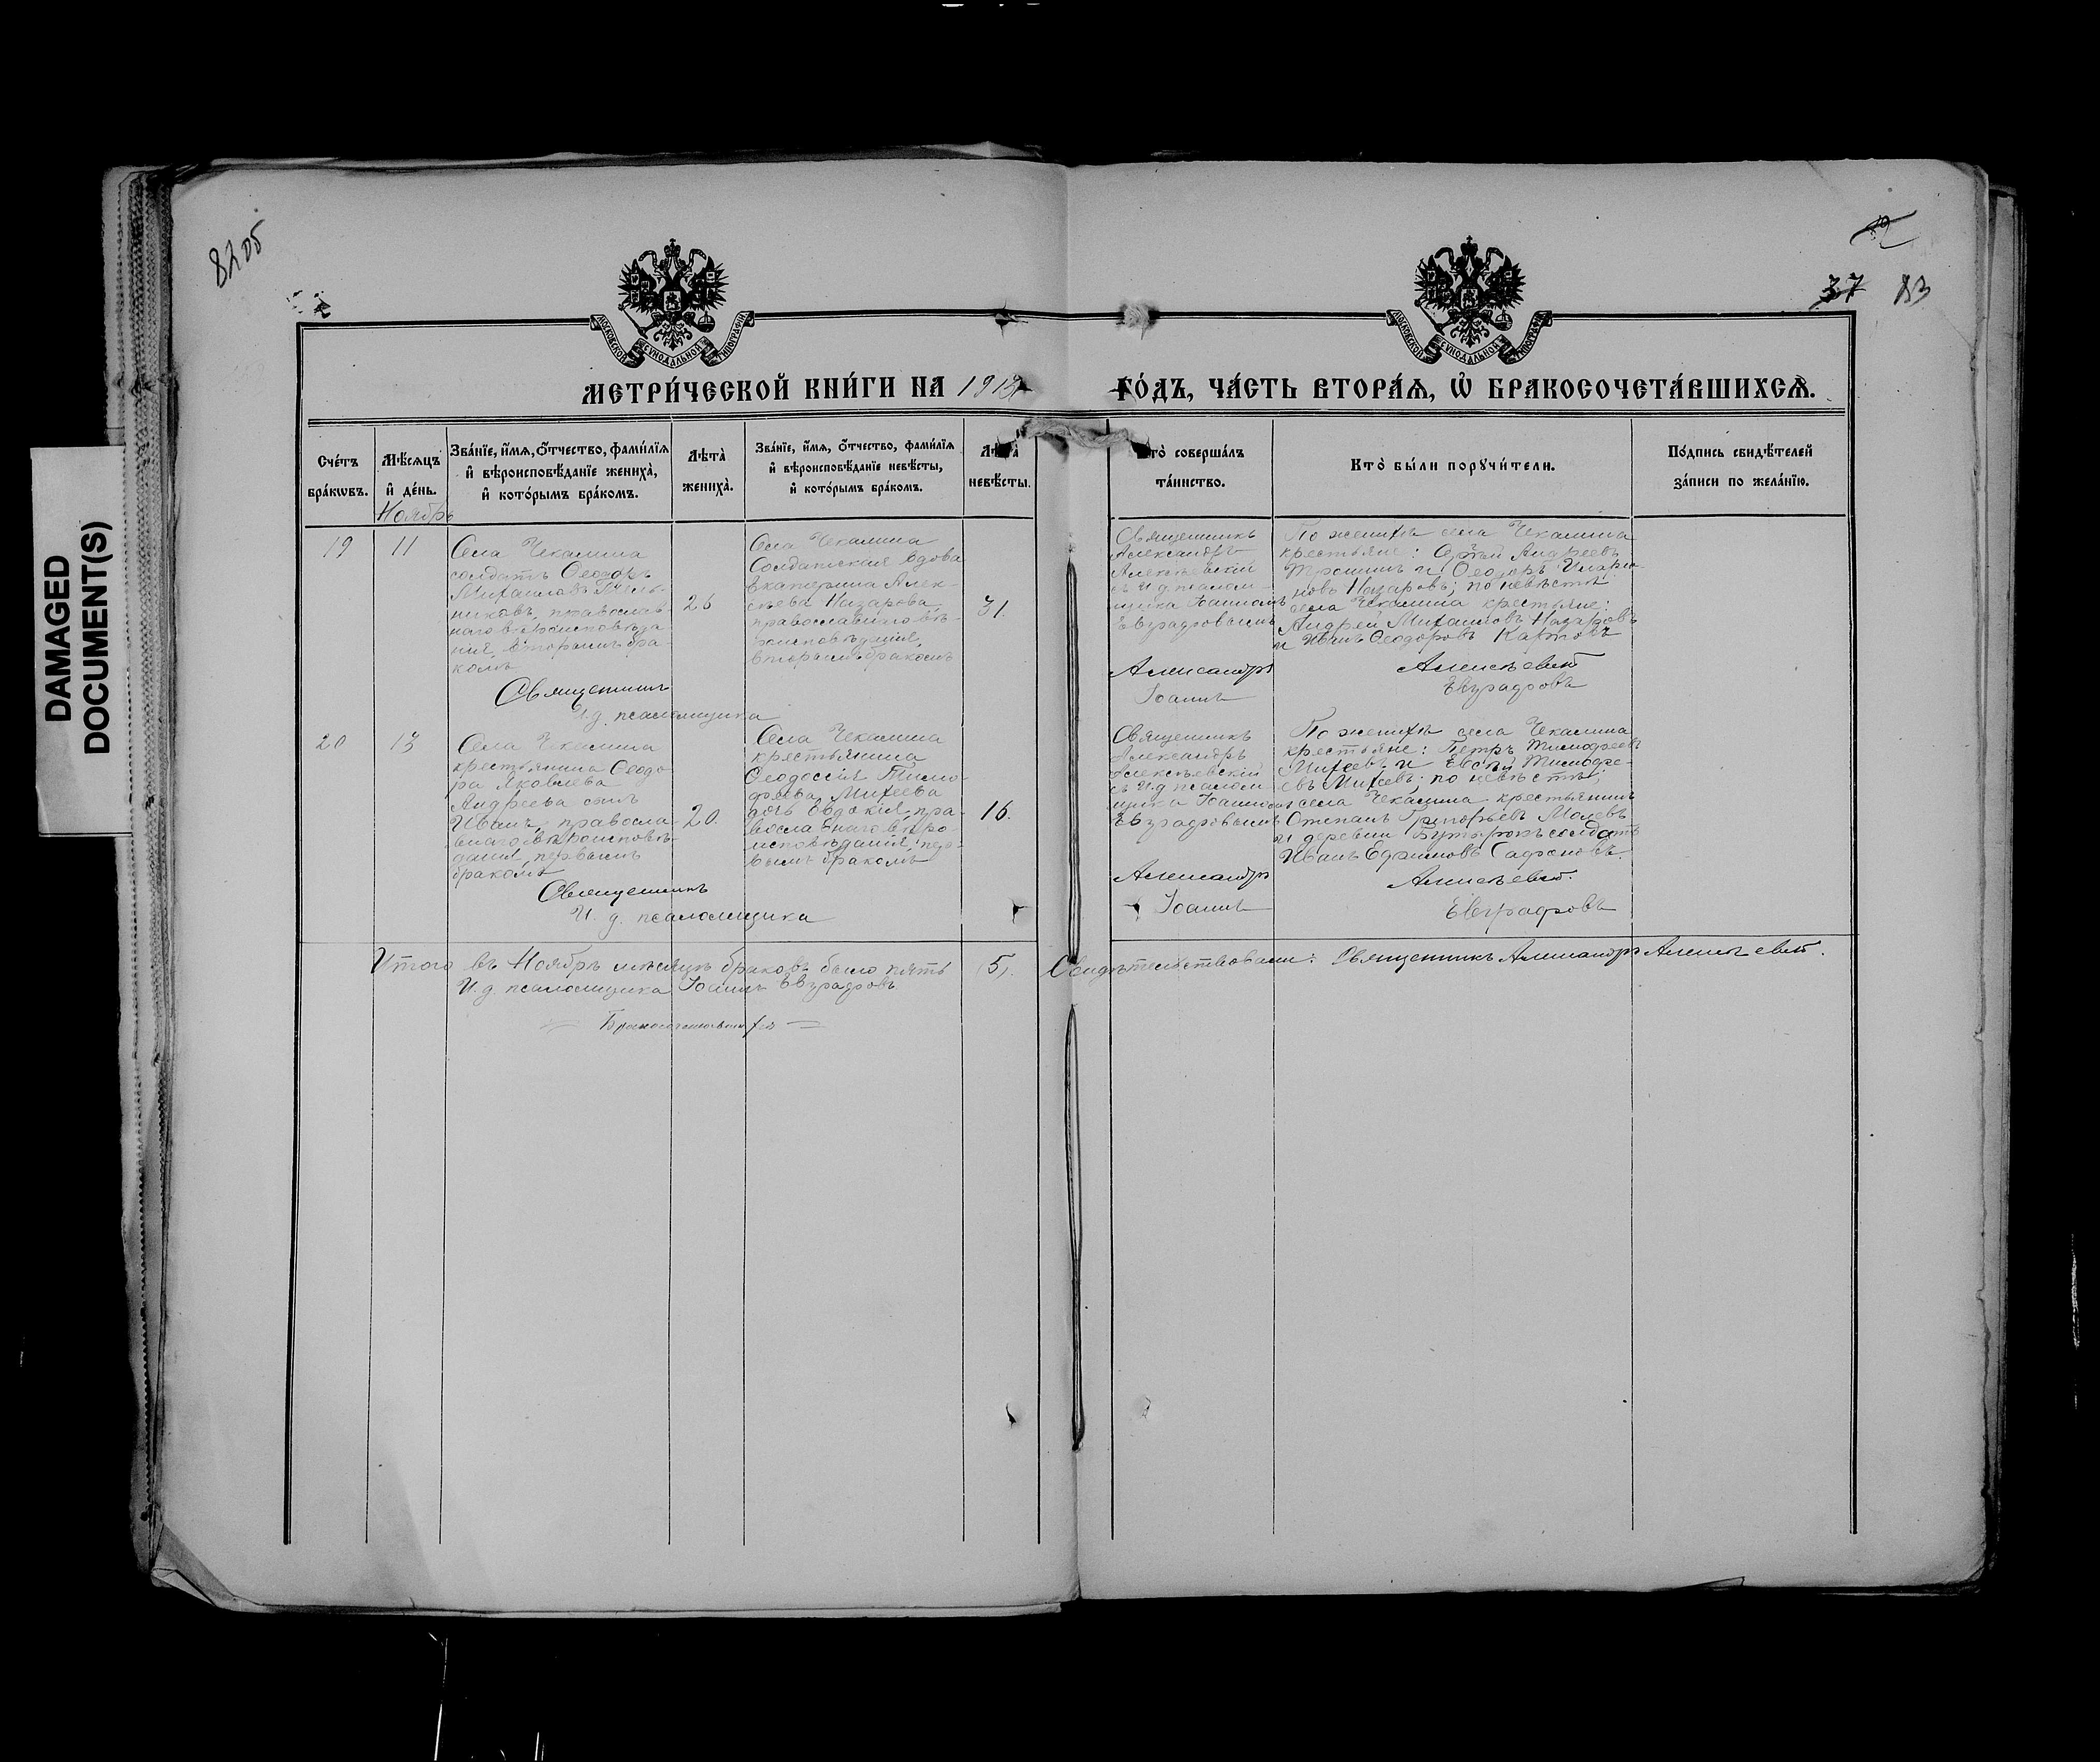 DAMAGED
DOCUMENT(S)
8205
37 83
МОСКОВСКОЙ СѴНОДАЛЬНОЙ ТИПОГРАФІИ
МОСКОВСКОЙ СѴНОДАЛЬНОЙ ТИПОГРАФІИ
МЕТРИ́ЧЕСКОЙ КНИ́ГИ НА 191
ГО́ДЪ, ЧА́СТЬ ВТОРА́Ѧ, Ѽ БРАКОСОЧЕТА́ВШИХСѦ.
Сче́тъ
бра́кѡвъ.
Мѣ́сѧцъ
и҆ де́нь.
Зва́нїе, и҆́мѧ, ѻ҆́тчество, фами́лїѧ
и҆ вѣроисповѣ́данїе жениха̀,
и҆ кото́рымъ бра́комъ.
Лѣта̀
жениха̀.
Зва́нїе, и҆́мѧ, ѻ҆́тчество, фами́лїѧ
и҆ вѣроисповѣ́данїе невѣ́сты,
и҆ кото́рымъ бра́комъ.
Лѣта̀
невѣ́сты.
то̀ соверша́лъ
та́инство.
Кто̀ бы́ли порꙋчи́тели.
По́дпись свидѣ́телей
за́писи по жела́нїю.
Ноябрь
19
11
Села Чекалина
солдатъ Ѳеодоръ
Михаиловъ
никовъ, православ-
наго вѣроисповѣда-
нія, вторымъ бра-
комъ
26
Села Чекалина
Солдатская вдова
Екатерина Алек-
сѣева Назарова,
православнаго вѣ-
роисповѣданія,
вторымъ бракомъ
31.
Священникъ
Александръ
Алексѣевскій
съ И.д. псалом-
щика Іоанномъ
Евграфовымъ
По женихѣ села Чекалина
крестьяне: Сергѣй Андреевъ
Трошинъ и Ѳеодоръ Иларіо-
новъ Назаровъ; по невѣстѣ:
села Чекалина крестьяне:
Андрей Михаиловъ Назаровъ
и Иванъ Ѳеодоровъ Карповъ
Священникъ Александръ Алексѣевскій
И.д. псаломщика Іоаннъ Евграфовъ
20
13
Села Чекалина
крестьянина Ѳеодо-
ра Яковлева
Андреева сынъ
Иванъ, правосла-
внаго вѣроисповѣ-
данія, первымъ
бракомъ
20.
Села Чекалина
крестьянина
Ѳеодосія Тимо-
феева Михеева
дочь Евдокія, пра-
вославнаго вѣро-
исповѣданія, пер-
вымъ бракомъ
16.
Священникъ
Александръ
Алексѣевскій
съ И.д. псалом-
щика Іоанномъ
Евграфовымъ
По женихѣ села Чекалина
крестьяне: Петръ Тимофеевъ
Михеевъ и Евсѣй Тимофе-
евъ Михеевъ; по невѣстѣ:
села Чекалина крестьянинъ
Степанъ Григорьевъ Молевъ
и деревни Бутырокъ солдатъ
Иванъ Ефимовъ Сафоновъ.
Священникъ Александръ Алексѣевскій.
И. д. псаломщика Іоаннъ Евграфовъ
Итого въ Ноябрѣ мѣсяцѣ браковъ было пять (5). Свидѣтельствовали: Священникъ Александръ Алексѣевскій.
И.д. псаломщика Іоаннъ Евграфовъ.
Бракосочетавшихся